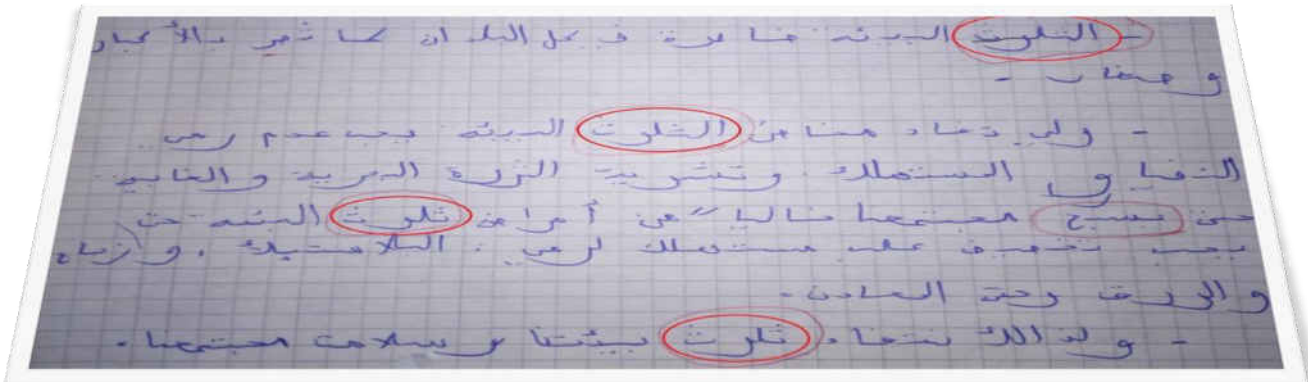 - التلوت البيئه ضاهرة في كل البلدان كما تمر بالأحجار
و حفار -
- ولي تفاد هنا من التلوث البيئه يجب عدم رمي
النفايا و المستهلك وتشريت النزرة البرية و الغابية
حتى يسبح مجتمعنا خاليا" من أمراض ثلوث البيئه حت
يجب تخصيف علب مستهلك لرمي . البلاستيك . و ازجاج
و الورق وحتى المعادن.
- ولذالك نتفاد ثلوث بيئتنا و سلامت مجتمعنا .